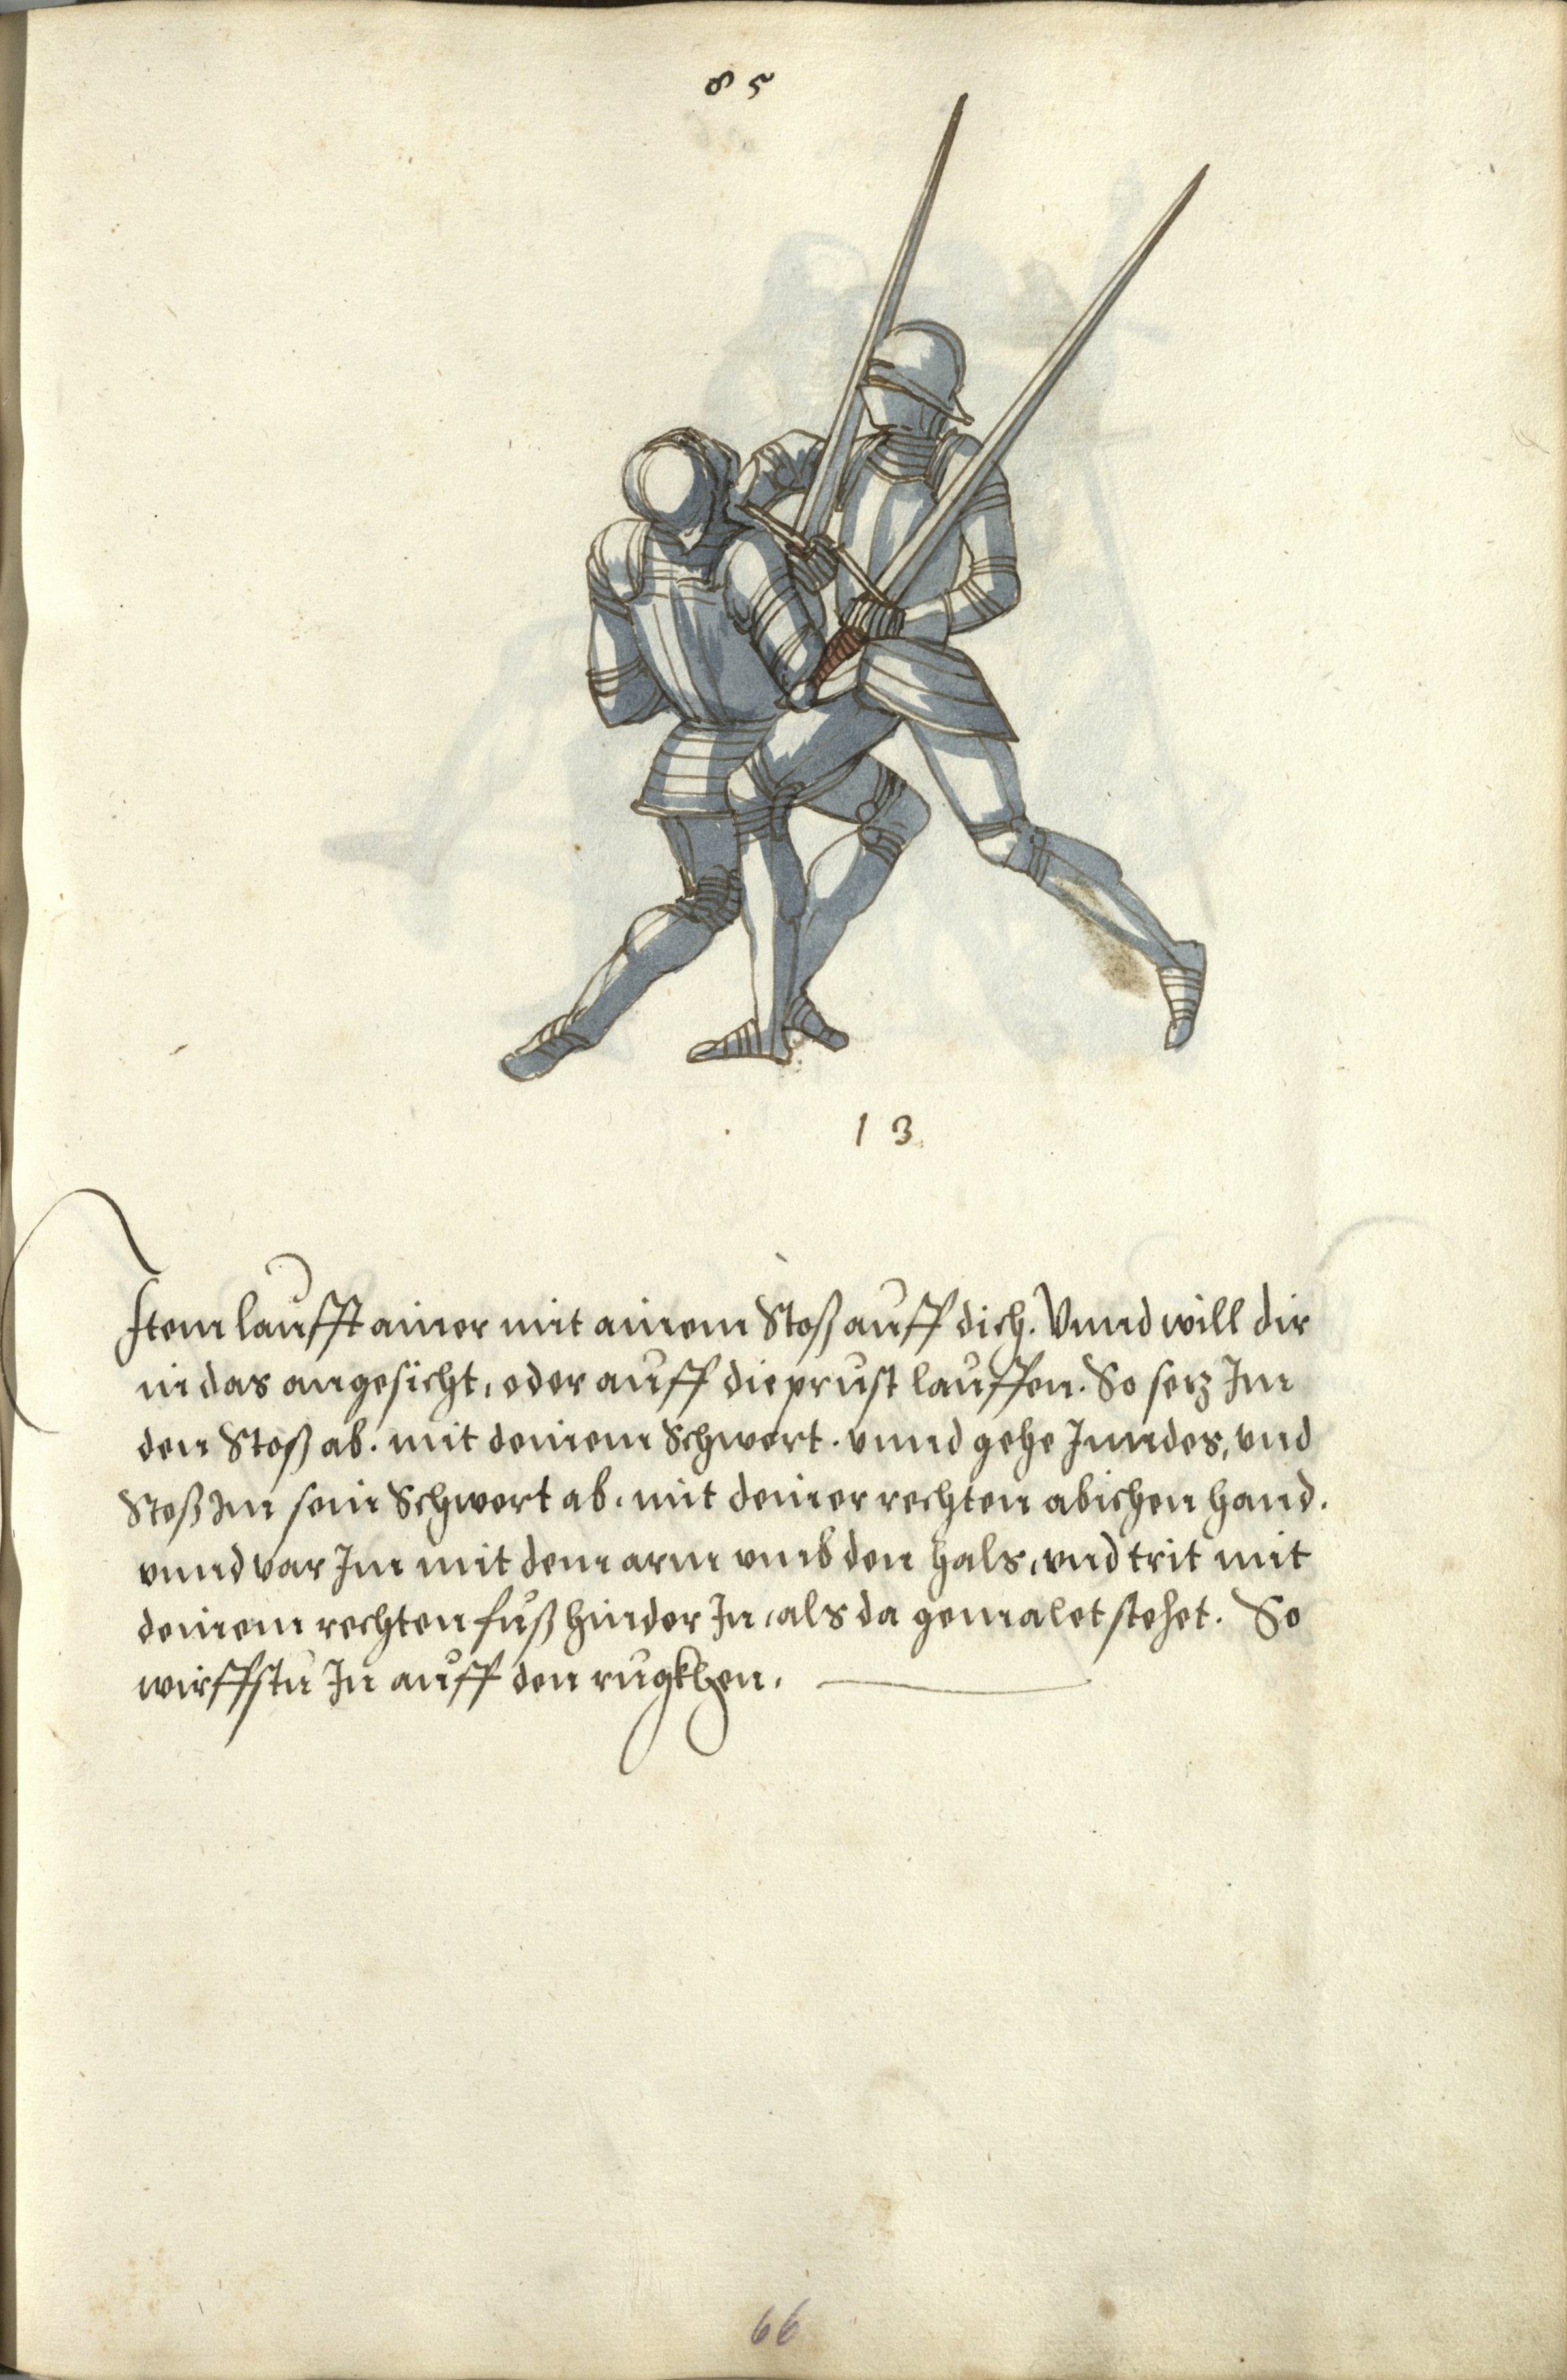 85
13
Item laufft ainer mit ainem Stoß auff dich. Vnnd will dir
in das angesicht, oder auff die prust lauffen. So setz Im
den Stoß ab. mit deinem Schwert. vnnd gehe Inndes, vnd
Stoß Im sein Schwert ab. mit deiner rechten abichen hand.
vnnd var Im mit dem arm vmb den hals, vnd trit mit
deinem rechten fuß hinder In, als da gemalet stehet. So
wirffstu In auff den rugkhen.
66